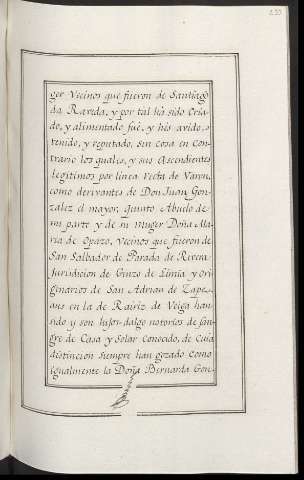 ger Vecinos que fueron de Santiago
da Raveda, y por tal há sido Cria-
do, y alimentado fué, y hés avido,
tenido, y reputado, sin cosa en con-
trario los quales, y sus Ascendientes
legitimos por linea recta de Varon,
como derivantes de Don Juan Gon-
zalez el mayor, quinto Abuelo de
mi parte y de su muger Doña Ma-
ria de Opazo, Vecinos que fueron de
San Salbador de Parada de Rivera
Jurisdicion de Ginzo de Limia y Ori-
ginarios de San Adrian de Zape-
aus en la de Rairiz de Veiga han
sido y son hijos-dalgo notorios de san-
gre de Casa y Solar Conocido, de Cuia
distincion siempre han gozado como
igualmente la Doña Bernarda Gon-